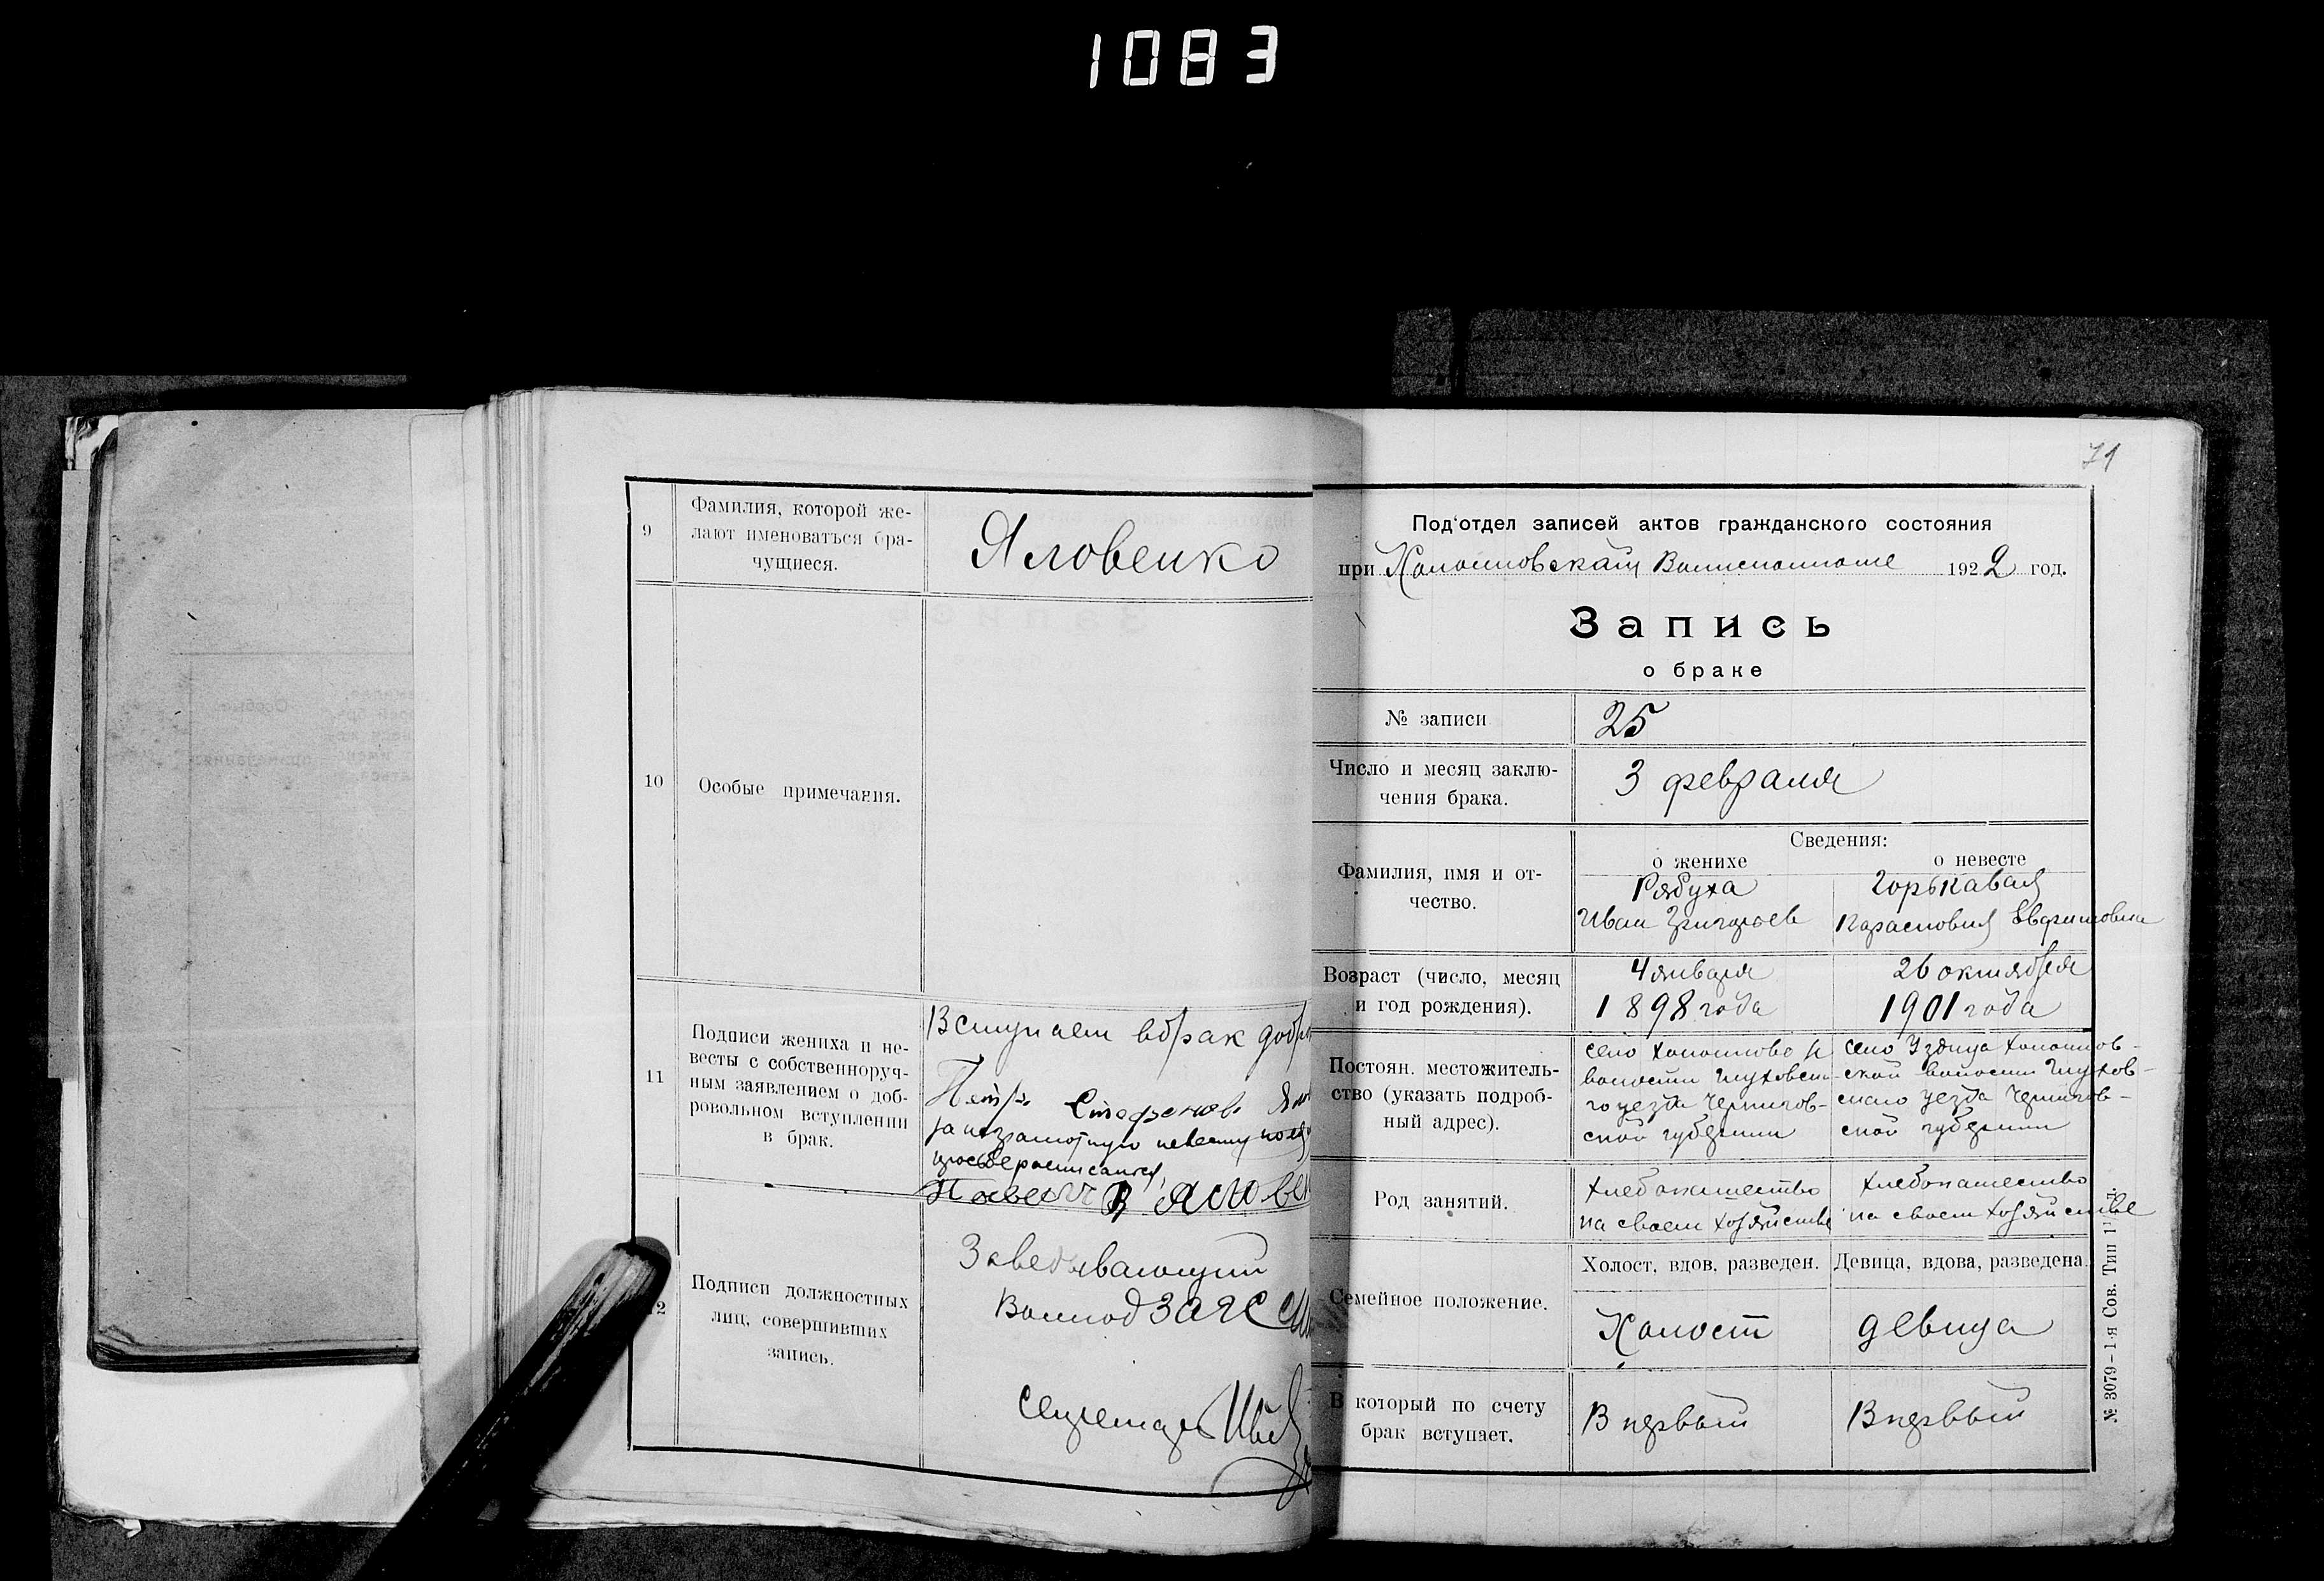 1083
9
Фамилия, которой же-
лают именоваться бра-
чущиеся.
Яловенко
10
Особые примечания.
11
Подписи жениха и не-
весты с собственноруч-
ным заявлением о доб-
ровольном вступлении
в брак.
Вступаем вбрак добр
Петръ Стефановъ Яло
за неграмотную невесту по ея
просьбе росписался,
Яловен
12
Подписи должностных
лиц, совершивших
запись.
Заведывающий
Волпод ЗАГС
Секретарь
71
Под'отдел записей актов гражданского состояния
при 1922 год.
Запись
о браке
№ записи
25
Число и месяц заклю-
чения брака.
3 февраля
Сведения:
о женихе
о невесте
Фамилия, имя и от-
чество.
Рябуха
Иван Григорьев
Горькавая
Возраст (число, месяц
и год рождения).
4 января
1898 года
26 октября
1901 года
Постоян. местожитель-
ство (указать подроб-
ный адрес).
село
волости Глуховска-
го уезда Чернигов-
ской губернии
село Уздица Холопков-
ской волости Глухов-
скаго уезда Чернигов-
ской губернии
Род занятий.
хлебопашество
на своем хозяйстве
хлебопашество
на своем хозяйстве
Семейное положение.
Холост, вдов, разведен.
Девица, вдова, разведена.
Холост
девица
В который по счету
брак вступает.
Впервый
Впервый
№ 3079-1-я Сов. Тип